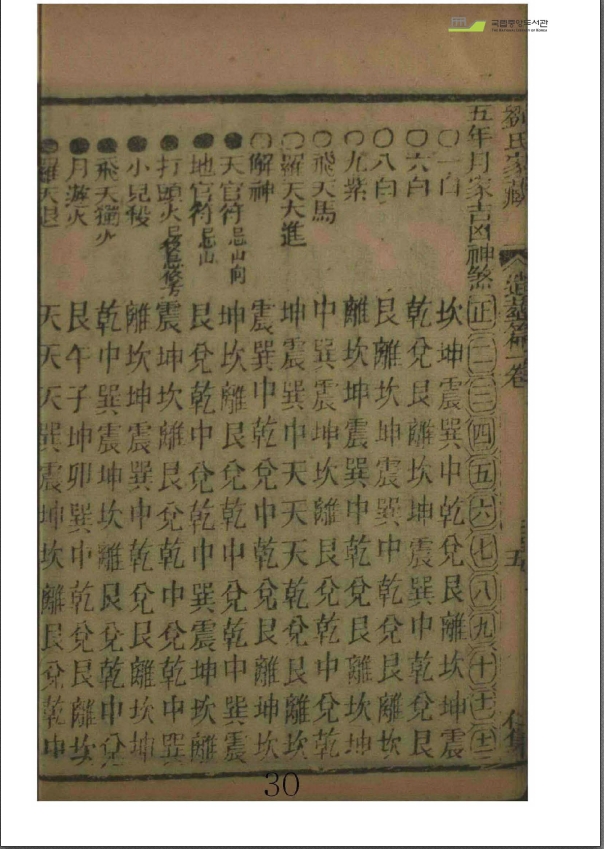 국립중앙도서관
THE NATIONAL LIBRARY OF KOREA
氏家藏 造葬篇一卷 五
五年月家吉凶神煞 正 二 三 四 五 六 七 八 九 十 十一 十二
○一白 坎坤震巽中乾兌艮離坎坤震
○六白 乾兌艮離坎坤震巽中乾兌艮
○八白 艮離坎坤震巽中乾兌艮離坎
○九紫 離坎坤震巽中乾兌艮離坎坤
○飛天馬 中巽震坤坎離艮兌乾中兌乾
○羅天大進 坤震巽中天天天乾兌艮離坎
○解神 震巽中乾兌中乾兌艮離坤坎
●天官符 忌山向 坤坎離艮兌乾中兌乾中巽震
●地官符 忌山 艮兌乾中兌乾中巽震坤坎離
●打頭火 震坤坎離艮兌乾中兌乾中巽
●小兒殺 離坎坤震巽中乾兌艮離坎坤
●飛天獨火 乾中巽震坤坎離艮兌乾中兌
●月遊火 艮午子坤卯巽中乾兌艮離坎
●羅天退 天天天巽震坤坎離艮兌乾中
30